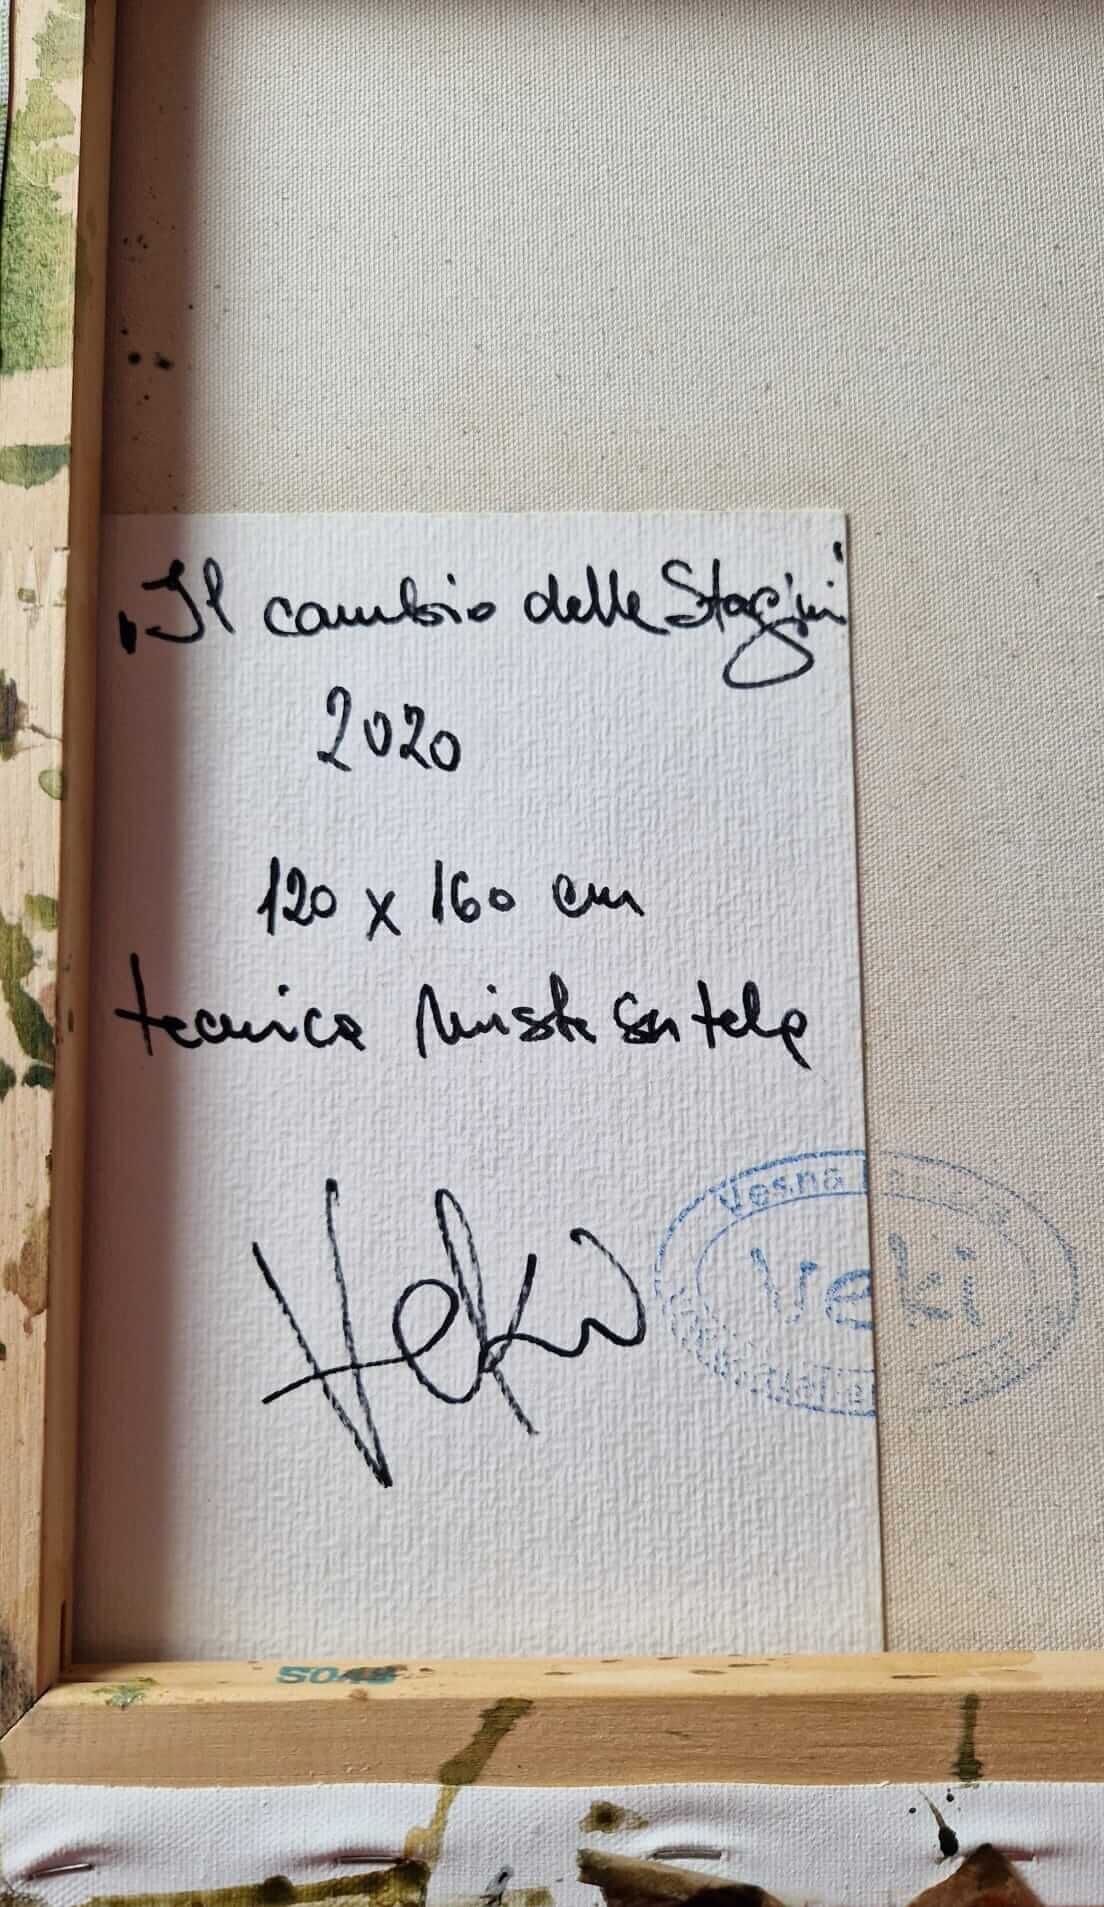 „Il cambio delle Stagioni"
2020
120 x 160 cm
tecnica mista su tela
Veki
Vesna
Veki